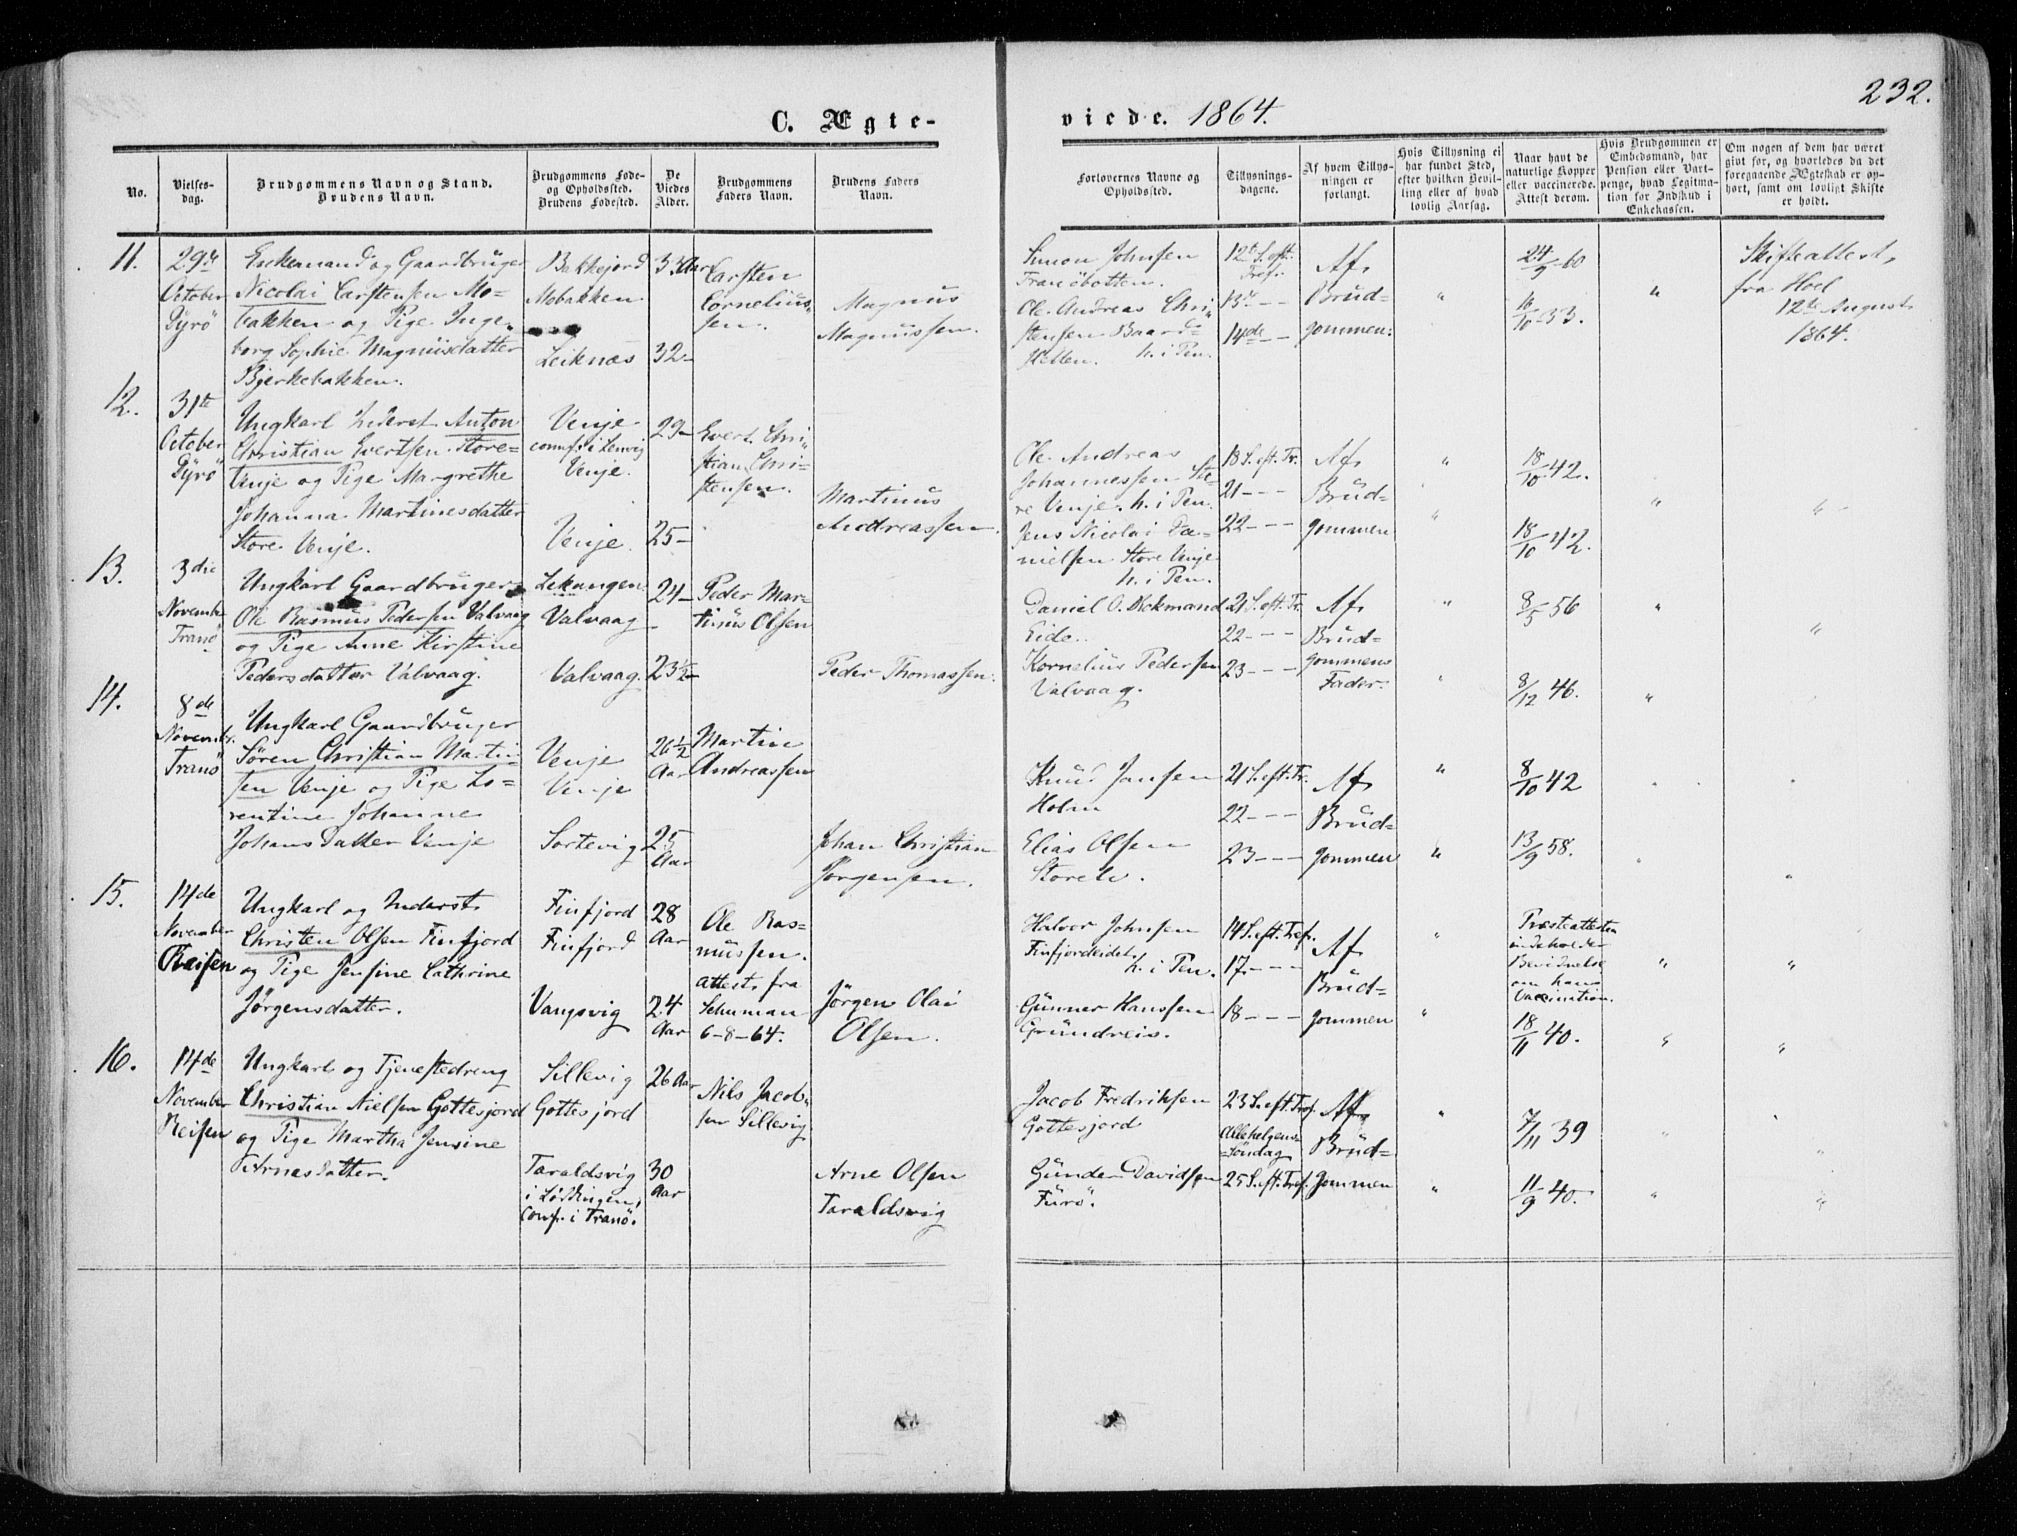 232.
C. Ægte-
viede. 1864.
No.
Vielses-
dag.
Brudgommens Navn og Stand.
Brudens Navn.
Brudgommens Føde-
og Opholdssted.
Brudens Fødested.
De
Viedes
Alder.
Brudgommens
Faders Navn.
Brudens Faders
Navn.
Forlovernes Navne og
Opholdssted.
Tillysnings-
dagene.
Af hvem Tillys-
ningen er
forlangt.
Hvis Tillysning ei
har fundet Sted,
efter hvilken Bevil-
ling eller af hvad
lovlig Aarsag.
Naar havt de
naturlige Kopper
eller vaccinerede.
Attest derom.
Hvis Brudgommen er
Embedsmand, har
Pension eller Vart-
penge, hvad Legitima-
tion for Indskud i
Enkekassen.
Om nogen af dem har været
givt før, og hvorledes da det
foregaaende Ægteskab er op-
hørt, samt om lovligt Skifte
er holdt.
11.
29de
October
Gyrö
Enkemand og Gaardbruger
Nicolai Carstensen Mo-
bakken og Pige Inge-
borg Sophie Magnusdatter
Bjerkebakken.
Bakkejord
Mobakken
Leiknæs
33 Aar
32-
Carsten
Cornelius-
sen.
Magnus
Magnussen.
Simon Johnsen
Tranöbotten.
Ole Andreas Chri-
stensen Baard-
h. i Pen.
12te S. eft.
Tref.
13de - -
14de - -
Af
Brud-
gommen.
"
24/9 60
16/10 33.
"
Skifteattest
fra Hoel
12te August
1864.
12.
31te
October
Gyrö
Ungkarl Inderst Anton
Christian Evertsen Store-
Venje og Pige Margrethe
Johanna Martinesdatter
Store Venje.
Venje
conf. i Lenvig
Venje.
Venje.
29-
25-
Evert Chri-
stian Chri-
stensen.
Martinus
Andreassen.
Ole Andreas
Johannessen Sto-
re Venje. h. i Pen.
Jens Nicolai Da-
nielsen Store Venje
h. i Pen.
18 S. eft. Tr.
21 - - -
22 - - -
Af
Brud-
gommen
"
"
18/10 42.
18/10 42.
"
"
13.
3die
November
Tranö
Ungkarl Gaardbruger
Ole Rasmus Pedersen Valvaag
og Pige Anne Kirstine
Pedersdatter Valvaag.
Lekangen
Valvaag
Valvaag.
24-
23½-
Peder Mar-
tinus Olsen
Peder Thomassen.
Daniel O. Dekmand
Eide.
Kornelius Pedersen
Valvaag.
21 S. eft. Tr.
22 - - -
23 - - -
Af
Brud-
gommens
Fader.
"
"
8/5 56
8/12 46.
"
"
"
14.
8de
Novembr.
Tranö
Ungkarl Gaardbruger
Sören Christian Marti-
sen Venje og Pige Lo-
rentine Johanne
Johansdatter Venje
Venje
Venje
Sortevig
26½
Aar
25
Aar
Martin
Andreassen
Johan Christian
Jörgensen.
Knud Jansen
Holm
Elias Olsen
Storelv.
21 S. eft. Tr.
22 - - -
23 - - -
Af
Brud-
gommen
"
"
8/10 42
13/9 58.
"
"
15.
14de
November
Reisen
Ungkarl og Inderst
Christen Olsen Finfjord
og Pige Jensine Cathrine
Jörgensdatter.
Finfjord
Finfjord
Vangsvig
28
Aar
24
Aar
Ole Ras-
mussen.
attest fra
Schuman
6-8-64.
Jörgen Olai
Olsen.
Halvor Johnsen
Finfjordeidet
h. i Pen.
Gunner Hansen
Grundreis.
14 S. eft. Tref.
17 - - -
18 - - -
Af
Brud-
gommen
"
"
Præsteattesten
indeholder
Bevidnelse
om hans
Vaccination.
18/11 40.
"
"
"
"
16.
14de
November
Reisen
Ungkarl og Tjenestedreng
Christian Nielsen Gottesjord
og Pige Martha Jensine
Arnesdatter.
Sillevig
Gottesjord
Taraldsvig
i Lödingen,
conf. i Tranö.
26 Aar
30
Aar
Nils Jacob-
sen Sillevig
Arne Olsen
Taraldsvig
Jacob Fredriksen
Gottesjord
Gunder Davidsen
Furö.
23 S. eft. Tref.
Allehelgens-
Söndag
25 S. eft. Tref.
Af
Brud-
gommen
"
"
7/11 39
11/9 40.
"
"
"
"